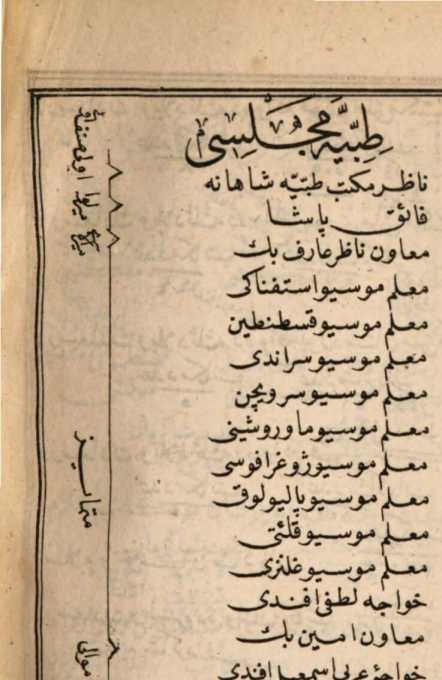 طبیّه مجلسی
ناظر مكتب طبّیّه شاهانه
فائق پاشا
معاون ناظر عارف بك
معلم موسیو استفناكی
معلم موسیو قسطنطین
معلم موسیو سراندی
معلم موسیو سرویچن
معلم موسیو ماوروشینی
معلم موسیو ژوغرافوسی
معلم موسیو پالیولوق
معلم موسیو قلئتی
معلم موسیو غلنزی
خواجه لطفی افندی
معاون امین بك
خواجهٔ عربی اسمعیل افندی
اولی صنف
متمایز
موالی